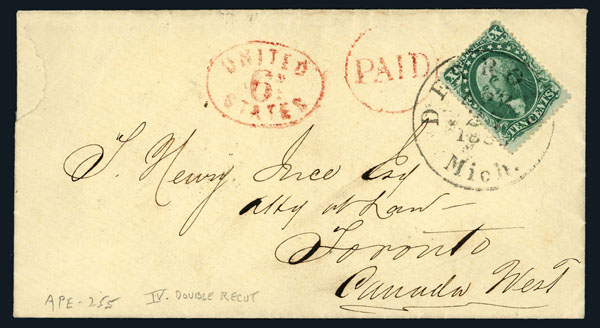 UNITED
6
STATES
PAID
TEN CENTS
Mich.
T. Henry Ince Esq
Atty at Law
Toronto
Canada West
APE-255 IV. DOUBLE RECUT